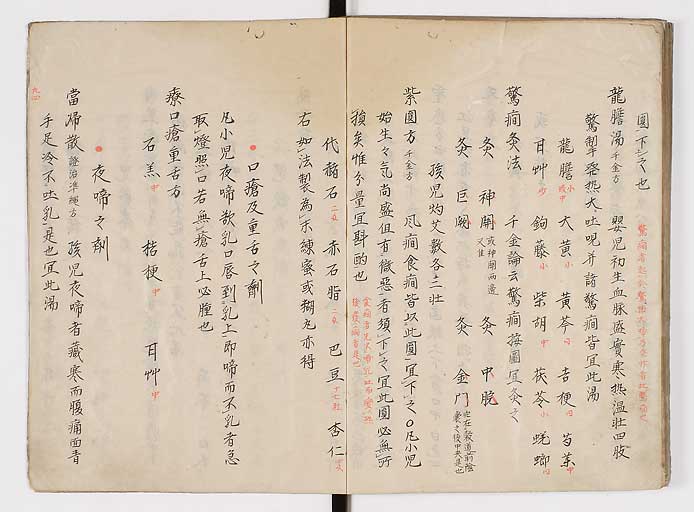 圓下之也
龍膽湯 千金方 嬰児初生血脉盛實寒热温壮四肢
驚掣発热大吐哯 并諸驚癇皆宜此湯
龍膽 大黄 黄芩 吉梗 芍薬
甘艸 鉤藤 柴胡 茯苓 蜣蜋
驚癇灸法 千金論云驚癇按圖宜灸之
灸 神闕 灸 中脘
灸 巨闕 灸 金門
孩児灼艾數各三壮
紫圓方 千金方 凡癇食癇皆以此圓宜下之○凡小児
始生々氣尚盛但有微惡者須下之宜此圓必無所
損矣惟分量宜斟酌也
代赭石 赤石脂 巴豆 杏仁
右如法製為末練蜜或糊丸亦得
口瘡及重舌之劑
凡小児夜啼欲乳口唇到乳上即啼而不乳者急
取燈照口若無瘡舌上必腫也
療口瘡重舌方
石羔中 桔梗中 甘艸中
夜啼之劑
當帰散 證治準繩方 孩児夜啼者藏寒而腹痛面青
手足冷不吐乳是也宜此湯